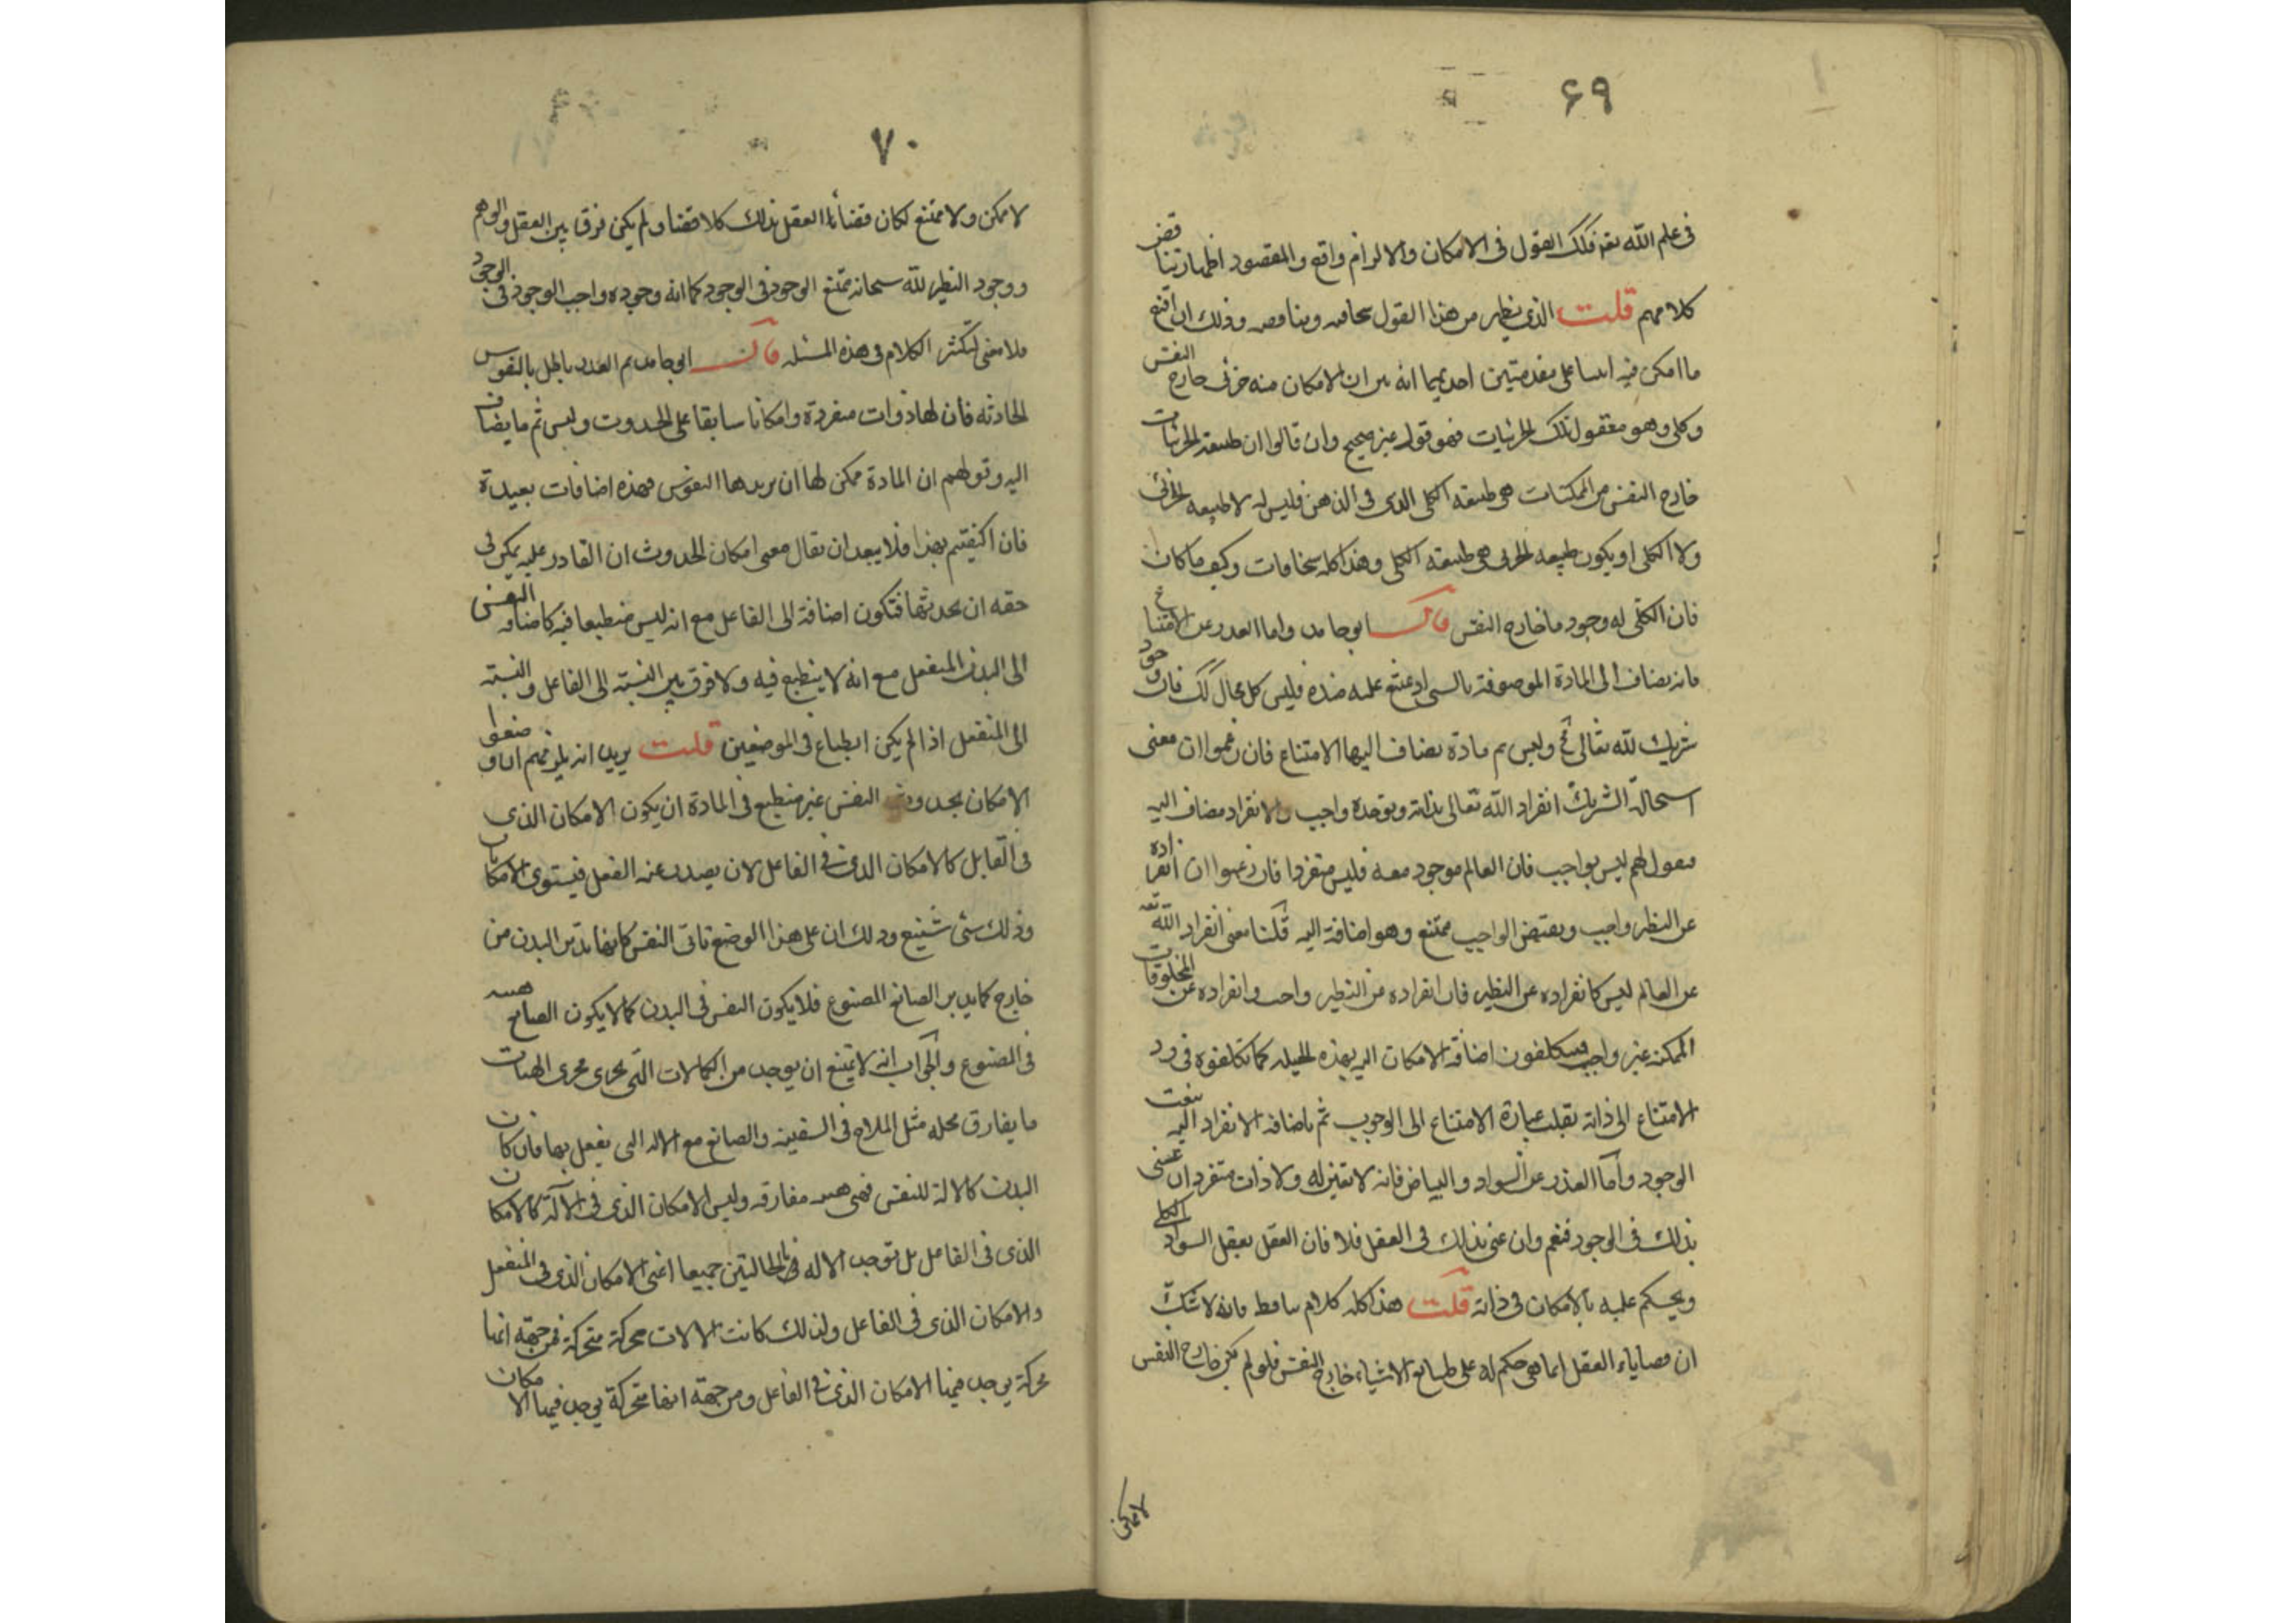 ۶۹
فى علم الله تعہ فكذلك القول فى الامكان والالزام واقع والمقصود اظهار تناقض
كلامهم قلت الذى يظهر من هذا القول سخافته وتناقضه وذلك ان اقنع
ما امكن فيه ابتنا على مقدمتين احديهما انه بين ان الامكان منه جزئى خارج النفس
وكلى وهو معقول تلك الجزئيات فهو قول غير صحيح وان قالوا ان طبيعة الجزئيات
خارج النفس من الممكنات هى طبيعة الكلى الذى فى الذهن فليس له لا طبيعة الجزئى
ولا الكلى او يكون طبيعة الجزئى هى طبيعة الكلى وهذا كله سخافات وكيف ما كان
فان الكلى له وجود ما خارج النفس قال ابو حامد واما العذر عن الامتناع
فانه يضاف الى المادة الموصوفة بالشى اذ يمتنع عليه ضده فليس كل محال كك فان وجود
شريك لله تعالى مح وليس ثم مادة يضاف اليها الامتناع فان زعموا ان معنى
استحالة الشريك انفراد الله تعالى بذاته وتوحده واجب والانفراد مضاف اليه
فنقول لهم ليس بواجب فان العالم موجود معه فليس منفردا فان زعموا ان انفراده
عن النظير واجب ونقيض الواجب ممتنع وهو اضافة اليه قلنا معنى انفراد الله تعہ
عن العالم ليس كانفراده عن النظير فان انفراده عن النظير واجب وانفراده عن المخلوقات
الممكنة غير واجب فيتكلفون اضافة الامكان اليه بهذه الحيلة كما تكلفوه فى رد
الامتناع الى ذاته بقلب عبارة الامتناع الى الوجوب ثم باضافة الانفراد اليه بنعت
الوجود وأما العذر عن السواد والبياض فانه لا نفس له ولا ذات منفرد ان عنى
بذلك فى الوجود فنعم وان عنى بذلك فى العقل فلا فان العقل يعقل السواد الكلى
ويحكم عليه بالامكان فى ذاته قلت هذا كله كلام ساقط فانه لا شك
ان قضاياء العقل انما هى حكم له على طبايع الاشياء خارج النفس فلو لم يكن خارج النفس
لا ممكن
۷۰
لا ممكن ولا ممتنع لكان قضاء العقل بذلك كلا قضا ولم يكن فرق بين العقل والوهم
ووجود النظير لله سبحانه ممتنع الوجود فى الوجود كما انه وجوده واجب الوجود فى الوجود
فلا معنى لتكثر الكلام فى هذه المسئلة قال ابو حامد ثم العذر باطل بالنفوس
الحادثه فأن لها ذوات منفردة وامكانا سابقا على الحدوث وليس ثم ما يضاف
اليه وقولهم ان المادة ممكن لها ان يدبرها النفوس فهذه اضافات بعيدة
فان اكتفيتم بهذا فلا يبعد ان يقال معنى امكان الحدوث ان القادر عليه يمكن فى
حقه ان يحدثها فتكون اضافة الى الفاعل مع انه ليس منطبعا فيه كما اضافه النفس
الى البدن المنفعل مع انه لا ينطبع فيه ولا فرق بين النسبة الى الفاعل والنسبة
الى المنفعل اذا لم يكن انطباع فى الموضعين قلت يريد انه يلزمهم ان وضعوا
الامكان بحدوث النفس غير منطبع فى المادة ان يكون الامكان الذى
فى القابل كالامكان الذى فى الفاعل لان يصدر عنه الفعل فيستوى الامكانان
وذلك شى شنيع وذلك ان على هذا الوضع تاتى النفس كانها تدبر البدن من
خارج كما يدبر الصانع المصنوع فلا يكون النفس فى البدن كما لا يكون الصانع هيئه
فى المصنوع والجواب انه لا يمتنع ان يوجد من الكمالات التى تجرى مجرى الهيئات
ما يفارق محله مثل الملاح فى السفينه والصانع مع الاله التى يفعل بها فان كان
البدن كالالة للنفس فهى هيئه مفارقه وليس الامكان الذى فى الآلة كالامكان
الذى فى الفاعل بل توجد الاله فى الحالتين جميعا اعنى الامكان الذى فى المنفعل
والامكان الذى فى الفاعل ولذلك كانت الالات محركة متحركة فمن جهة انها
محركة يوجد فيها الامكان الذى فى الفاعل ومن جهة انها متحركة يوجد فيها الامكان